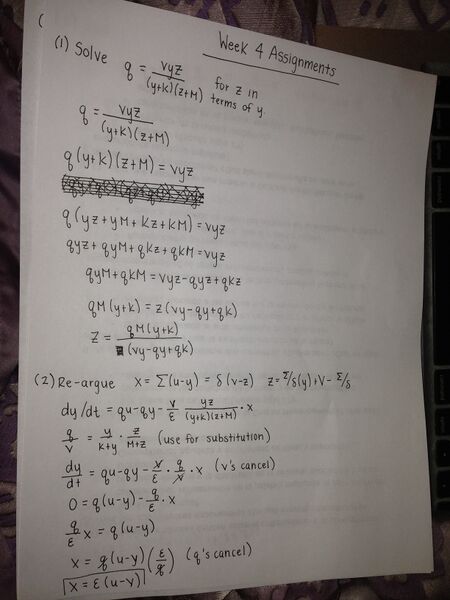 Week 4 Assignments
(1) Solve q = vyz/(y+k)(z+M) for z in terms of y.
q = vyz/(y+k)(z+M)
q(y+k)(z+M) = vyz
q(yz+yM+kz+kM) = vyz
qyz+qyM+qkz+qkM = vyz
qyM+qkM = vyz-qyz+qkz
qM(y+k) = z(vy-qy+qk)
z = qM(y+k)/(vy-qy+qk)
(2) Re-argue x = Σ(u-y) = δ(v-z) z = Σ/δ(y)+V- Σ/δ
dy/dt = qu-qy- v/ε yz/(y+k)(z+M) · x
q/v = y/k+y · z/M+z (use for substitution)
dy/dt = qu-qy- v/ε · q/v · x (v's cancel)
0 = q(u-y)- q/ε · x
q/ε x = q(u-y)
x = q(u-y)(ε/q) (q's cancel)
x = ε(u-y)